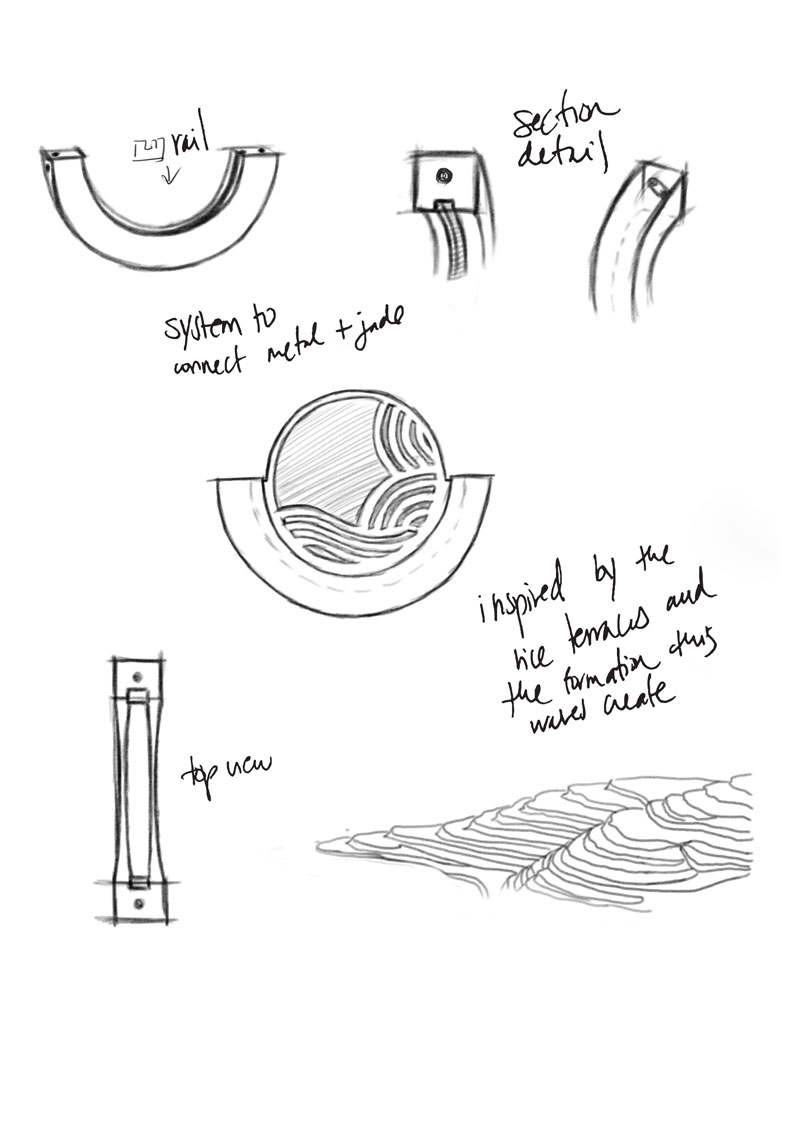 rail
section
detail
system to
connect metal + jade
inspired by the
rice terraces and
the formation this
waves create
top view